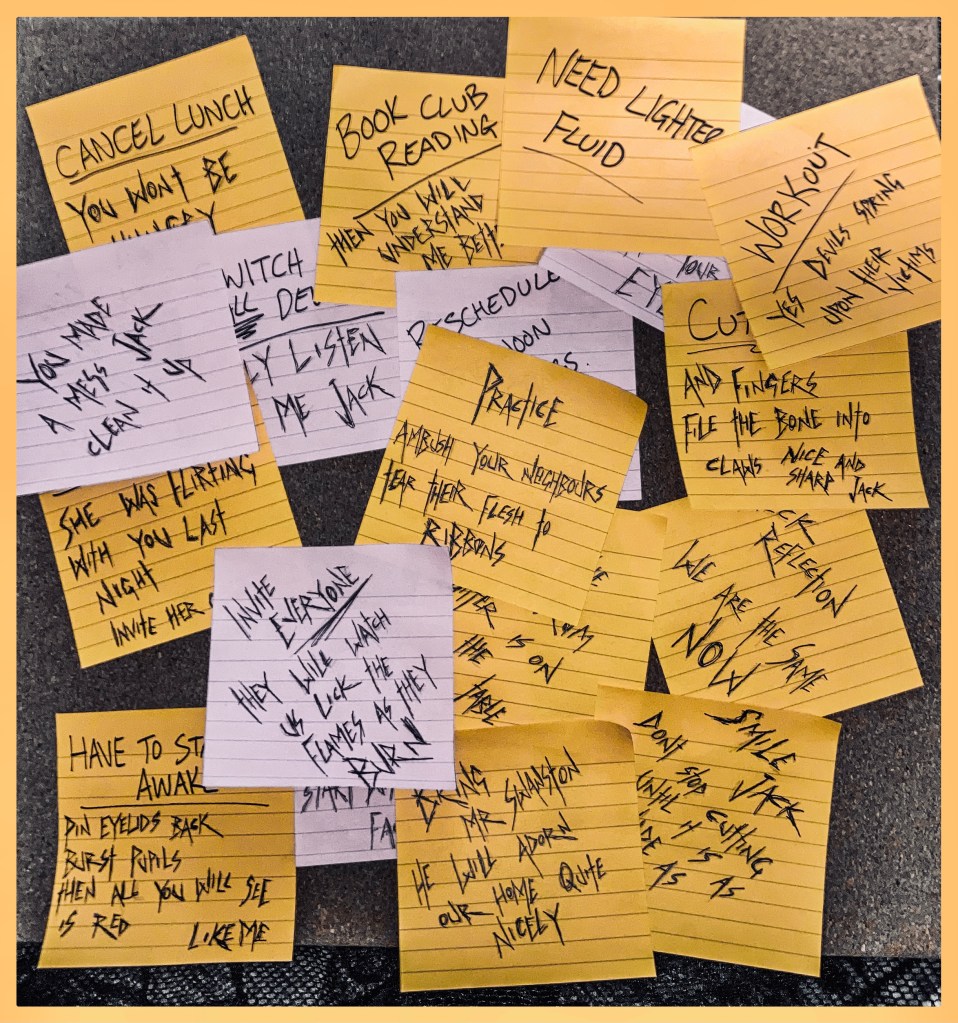 CANCEL LUNCH
YOU WONT BE
HUNGRY
BOOK CLUB
READING
THEN YOU WILL
UNDERSTAND
ME
NEED LIGHTER
FLUID
WORKOUT
YES DEVILS SPRING
UPON THEIR
VICTIMS
YOU MADE
A MESS JACK
CLEAN IT UP
WITCH
LY LISTEN
ME JACK
RESCHEDULE
YOUR
CUT
AND FINGERS
FILE THE BONE INTO
CLAWS NICE AND
SHARP JACK
PRACTICE
AMBUSH YOUR NEIGHBOURS
TEAR THEIR FLESH TO
RIBBONS
SHE WAS FLIRTING
WITH YOU LAST
NIGHT
INVITE HER
INVITE
EVERYONE
THEY WILL WATCH
US LICK THE
FLAMES AS THEY
BURN
IS
THE ON
TABLE
REFLECTION
WE ARE THE SAME
NOW
HAVE TO STAY
AWAKE
PIN EYELIDS BACK
BURST PUPILS
THEN ALL YOU WILL SEE
IS RED
LIKE ME
START
BRING
MR SWANSTON
HE WILL ADORN
OUR HOME QUITE
NICELY
SMILE JACK
DONT STOP CUTTING
UNTIL IT IS
AS
AS